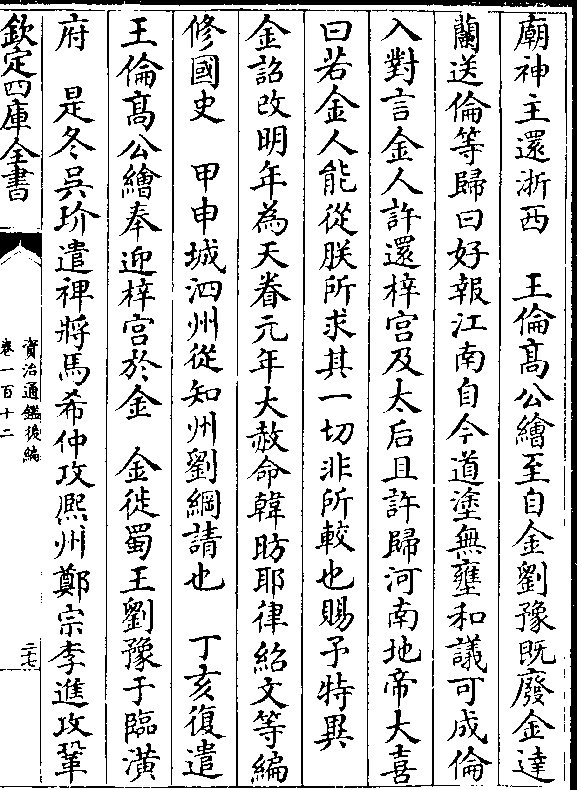 廟神主還浙西　王倫髙公繪至自金劉豫既廢金達
蘭送倫等歸曰好報江南自今道塗無壅和議可成倫
入對言金人許還梓宫及太后且許歸河南地帝大喜
曰若金人能從朕所求其一切非所較也賜予特異
金詔改明年為天眷元年大赦命韓昉耶律紹文等編
修國史　甲申城泗州從知州劉綱請也　丁亥復遣
王倫髙公繪奉迎梓宫於金　金徙蜀王劉豫于臨潢
府　是冬吳玠遣裨將馬希仲攻熈州鄭宗李進攻鞏
欽定四庫全書
資治通鑑後編
卷一百十二
二七